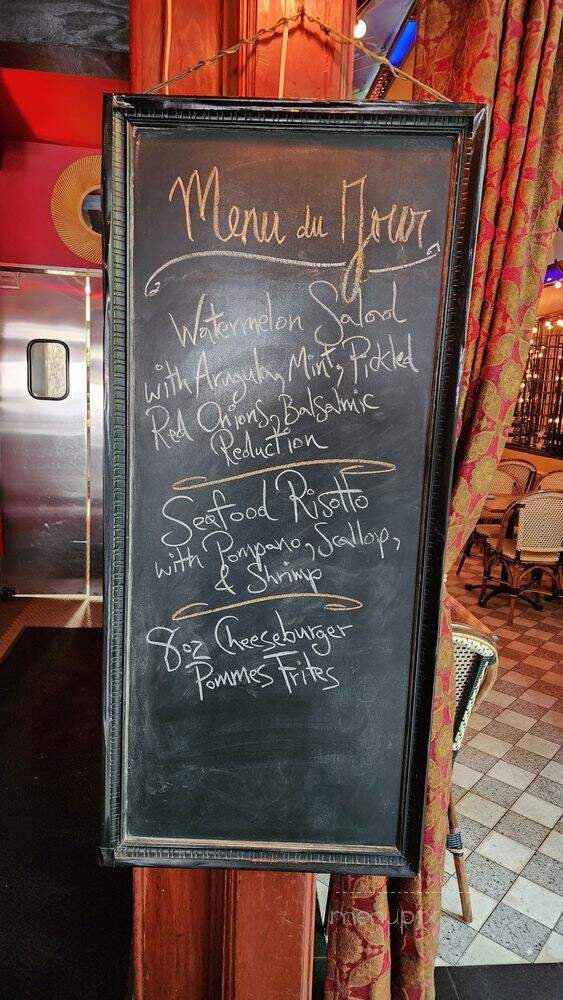 Menu du Jour
Watermelon Salad
with Arugula, Mint, Pickled
Red Onions, Balsalmic
Reduction
Seafood Risotto
with Pompano, Scallop,
& Shrimp
8oz Cheeseburger
Pommes Frites